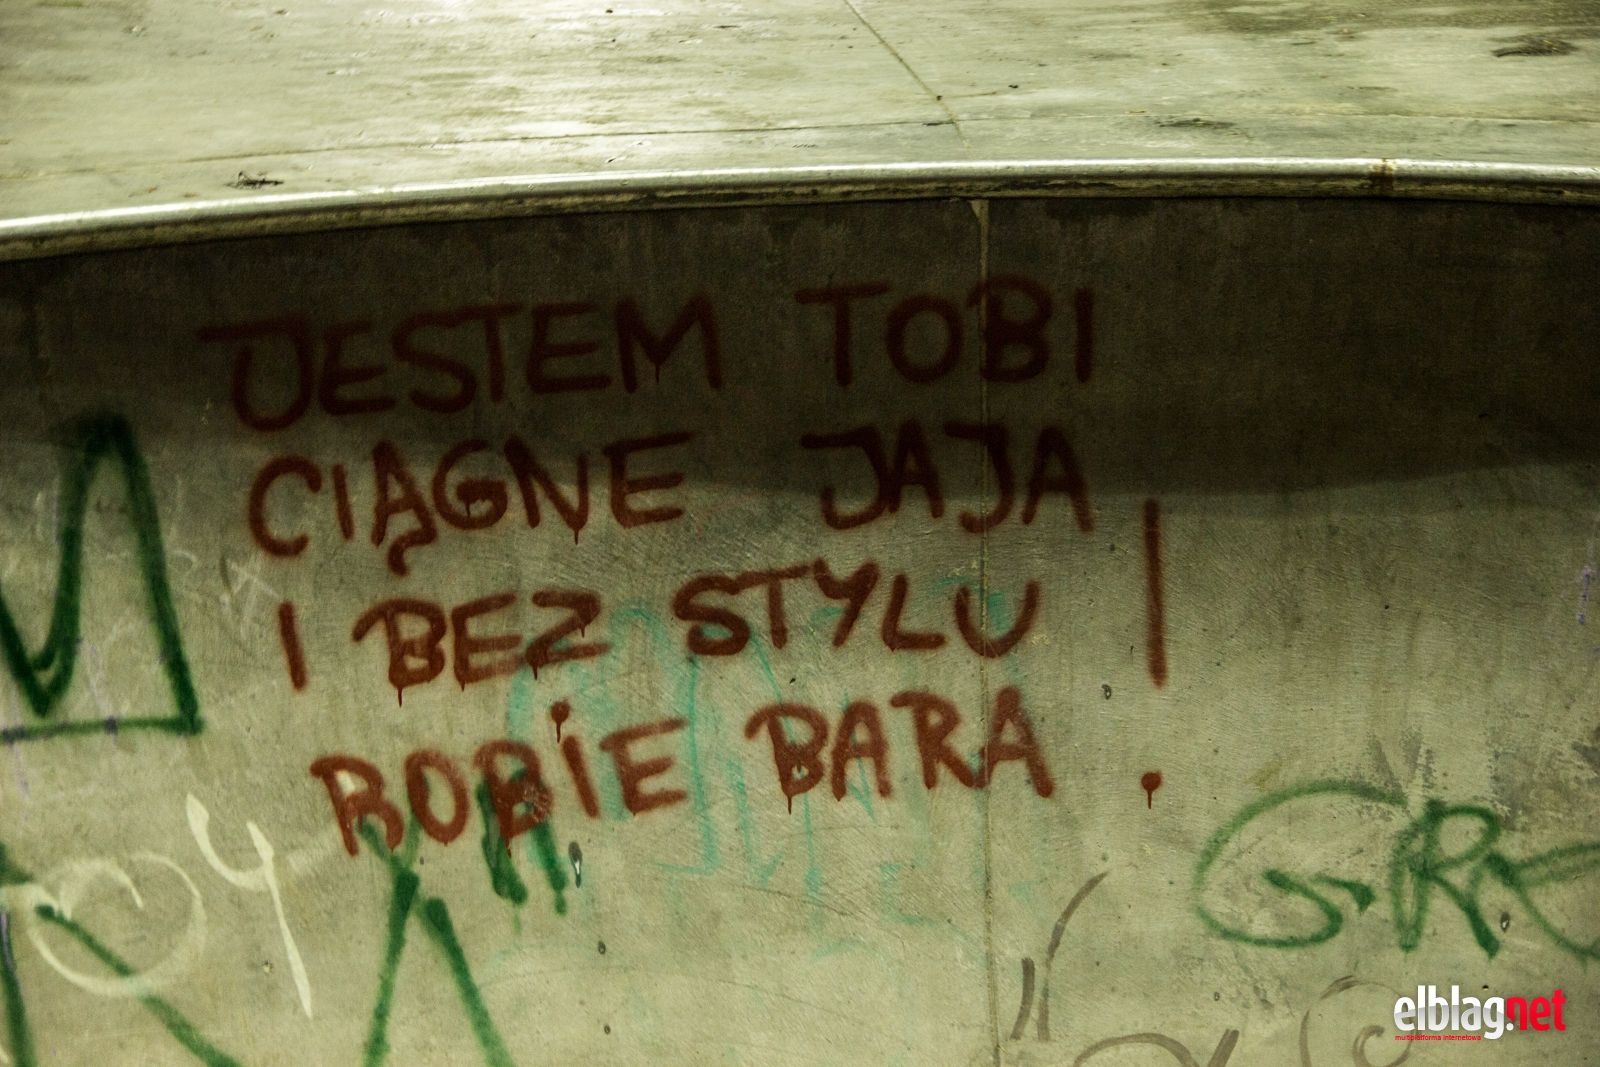 JESTEM TOBI
CIĄGNE JAJA
I BEZ STYLU
ROBIE BARA !
elblag.net
multiplatforma internetowa